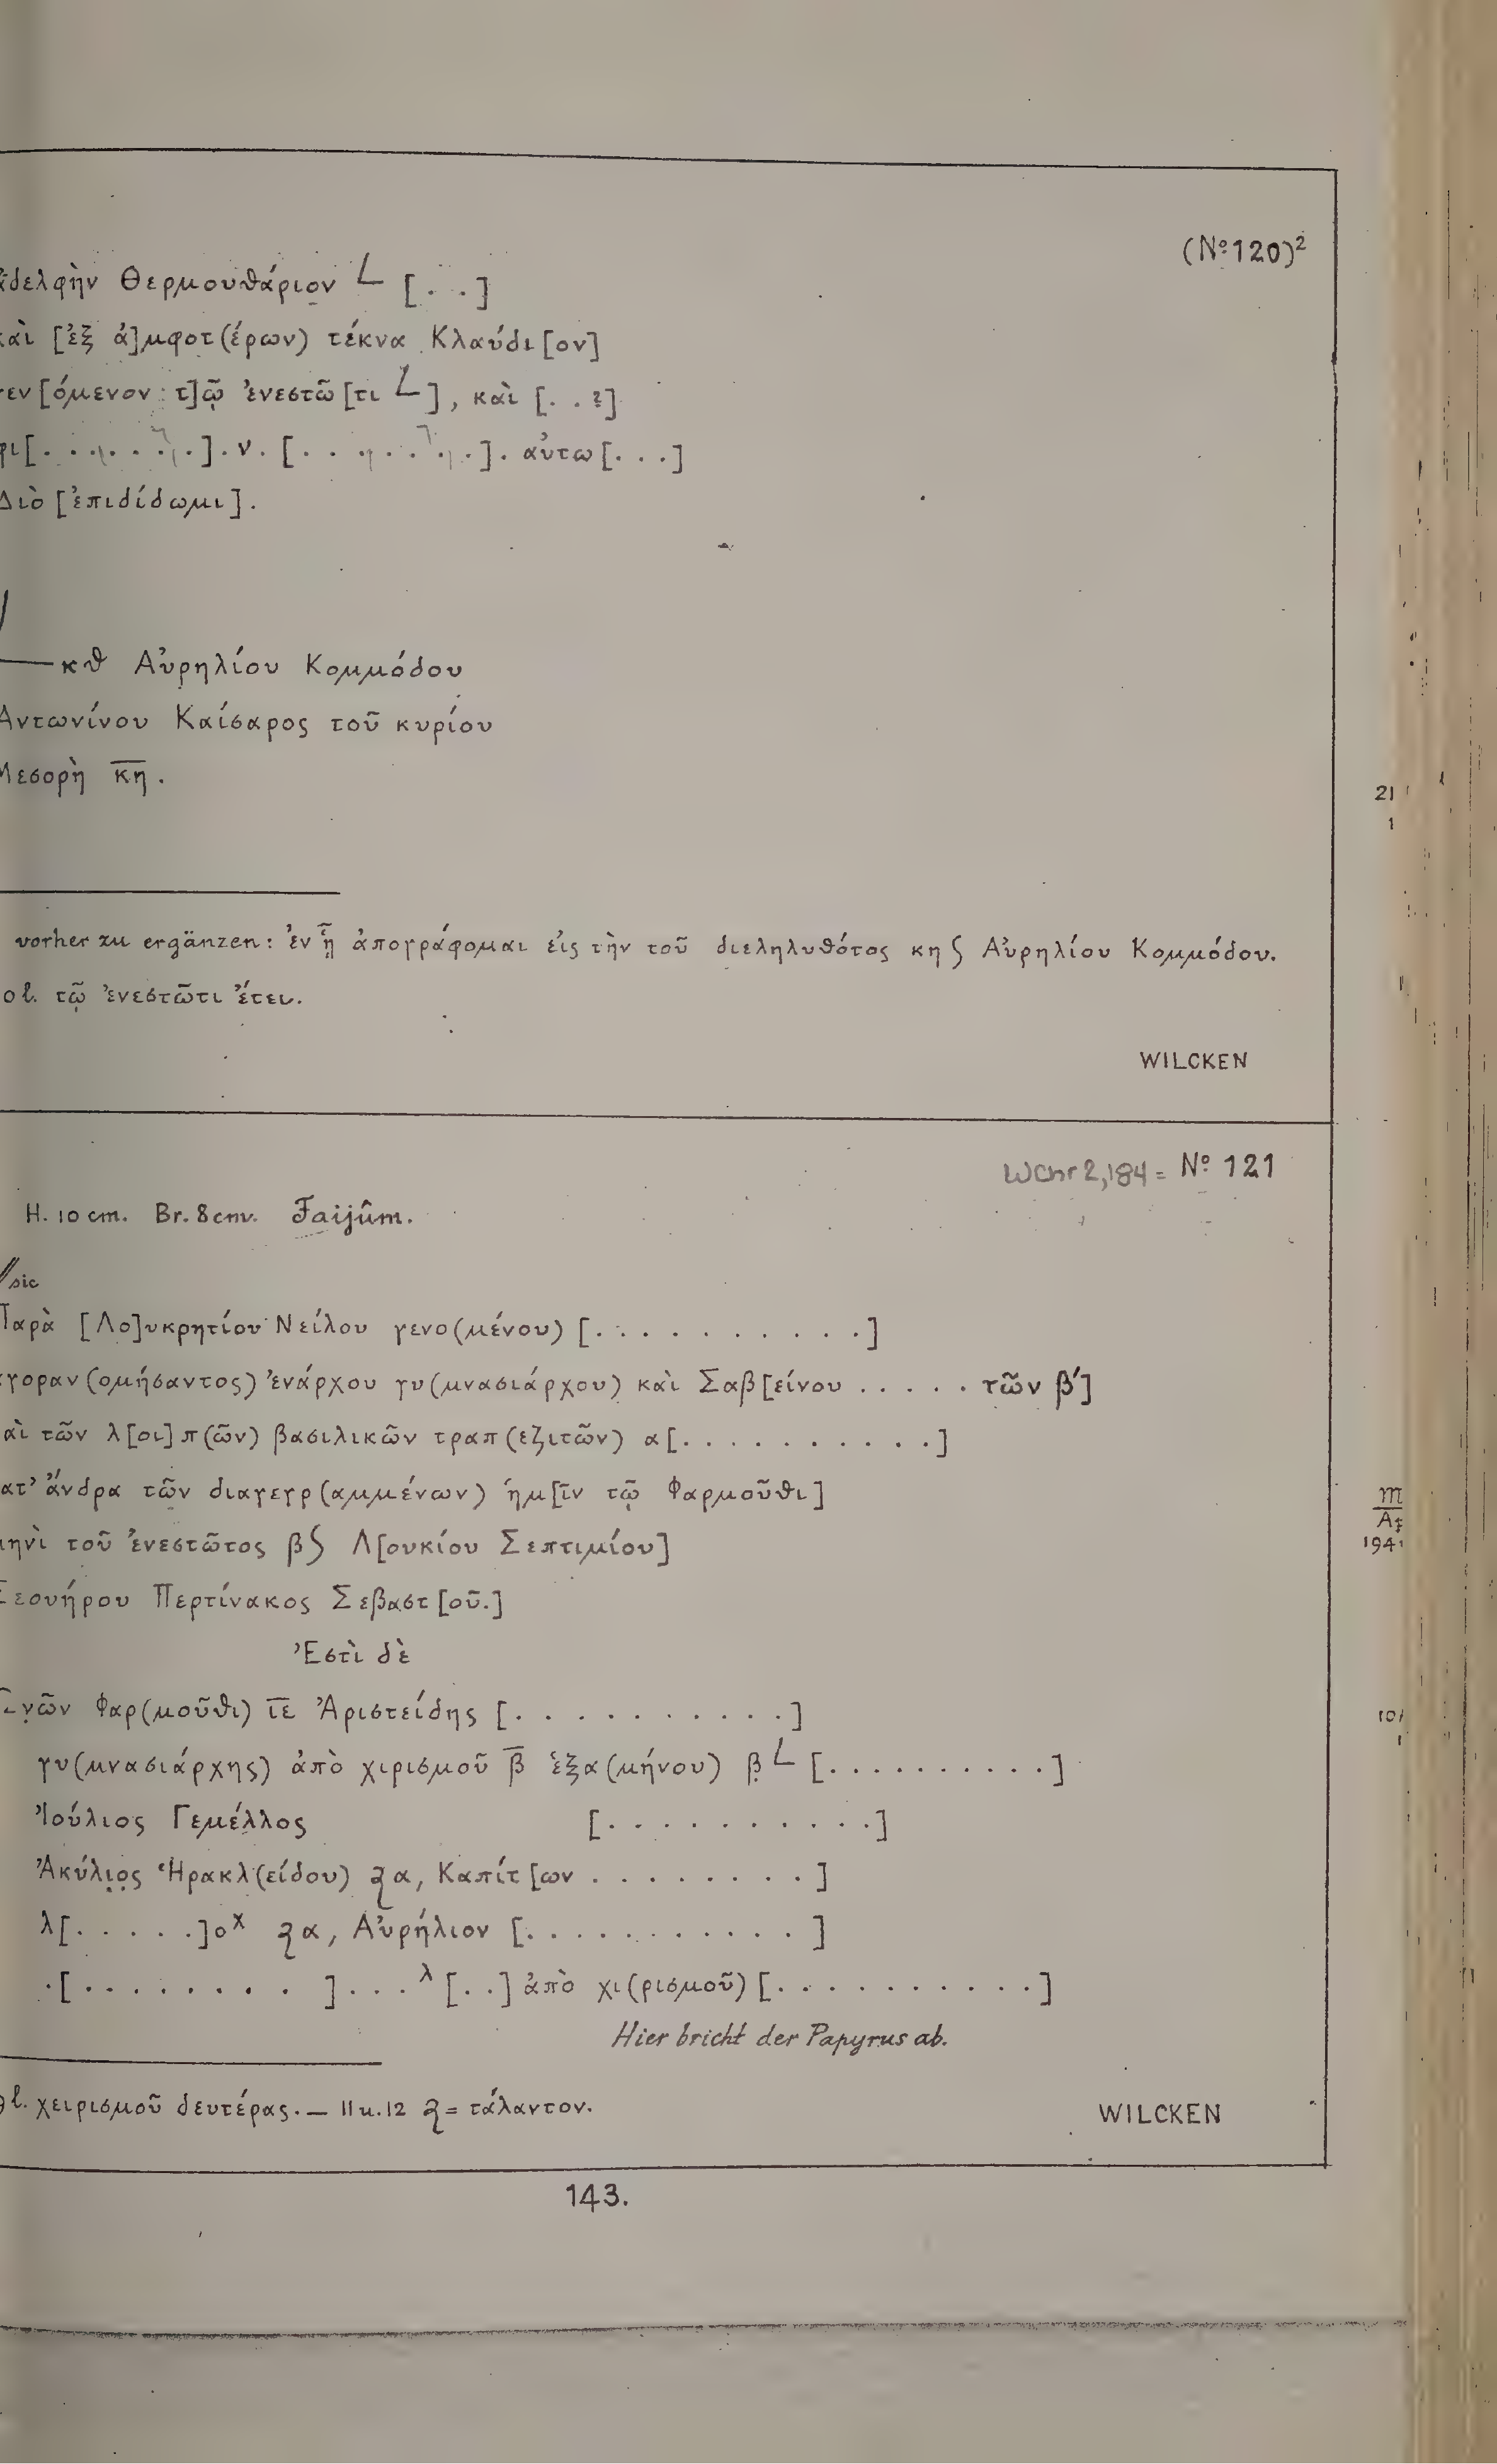 (Nº 120)²
ἀδελφὴν Θερμουθάριον L [. .]
καὶ [ἐξ ἀ]μφοτ(έρων) τέκνα Κλαύδι[ον]
γεν[όμενον τ]ῷ ἐνεστῶ[τι L], καὶ [. . ?]
[. . . . . . .]. ν. [. . . . . . .]. αὐτω[. . .]
Διὸ [ἐπιδίδωμι].
κθ Αὐρηλίου Κομμόδου
Ἀντωνίνου Καίσαρος τοῦ κυρίου
Μεσορὴ κ̅η̅.
vorher zu ergänzen: ἐν ᾗ ἀπογράφομαι εἰς τὴν τοῦ διεληλυθότος κη ϛ Αὐρηλίου Κομμόδου.
ol. τῷ ἐνεστῶτι ἔτει.
WILCKEN
WChr 2,184 = Nº 121
H. 10 cm. Br. 8 cm. Faijûm.
sic
Παρὰ [Λο]υκρητίου Νείλου γενο(μένου) [. . . . . . . . . . .]
ἀγοραν(ομήσαντος) ἐνάρχου γυ(μνασιάρχου) καὶ Σαβ[είνου . . . . . τῶν β´]
καὶ τῶν λ[οι]π(ῶν) βασιλικῶν τραπ(εζιτῶν) α[. . . . . . . . . . .]
κατ' ἄνδρα τῶν διαγεγρ(αμμένων) ἡμ[ῖν τῷ Φαρμοῦθι]
μηνὶ τοῦ ἐνεστῶτος βϛ Λ[ουκίου Σεπτιμίου]
Σεουήρου Περτίνακος Σεβαστ[οῦ.]
Ἐστὶ δὲ
νῶν Φαρ(μοῦθι) ι̅ε̅ Ἀριστείδης [. . . . . . . . . . .]
γυ(μνασιάρχης) ἀπὸ χιρισμοῦ β̅ ἑξα(μήνου) β̣ L [. . . . . . . . . .]
Ἰούλιος Γεμέλλος [. . . . . . . . . . .]
Ἀκύλι̣ο̣ς Ἡρακλ(είδου) ϟα, Καπίτ[ων . . . . . . . .]
λ[. . . . .]οˣ ϟα, Αὐρήλιον [. . . . . . . . . . .]
.[. . . . . . . . ]. . .^λ [. .] ἀπὸ χι(ρισμοῦ) [. . . . . . . . . .]
Hier bricht der Papyrus ab.
l. χειρισμοῦ δευτέρας. — 11 u. 12 ϟ = τάλαντον.
WILCKEN
143.